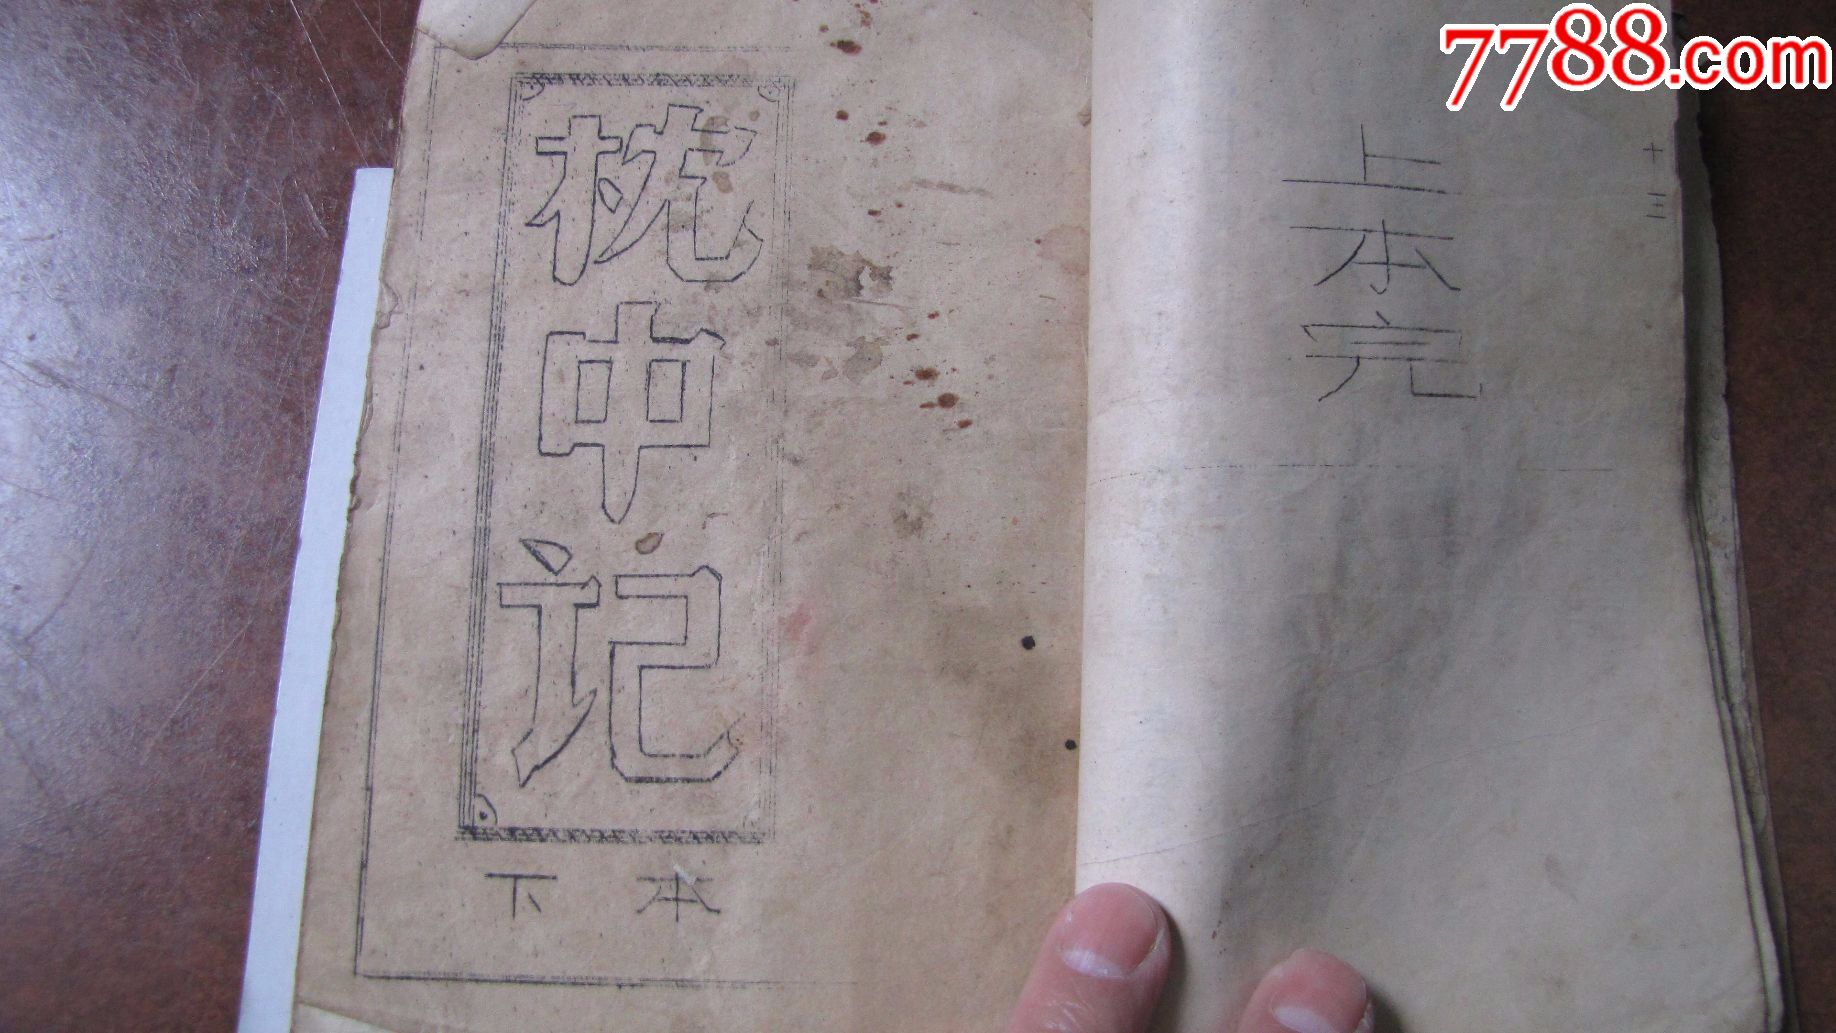 7788.com
十三
上本完
枕中记
下本